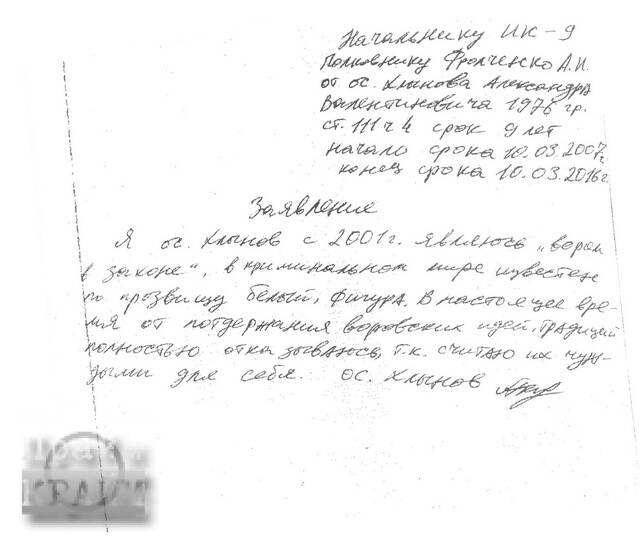 Начальнику ИК-9
полковнику Фролченко А.И.
от ос. Хлынова Александра
Валентиновича 1976 гр.
ст. 111 ч 4 срок 9 лет
начало срока 10.03.2007г
конец срока 10.03.2016г.
Заявление
Я ос. Хлынов с 2001г. являюсь „вором
в законе“, в криминальном мире известен
по прозвищу белый, фигура. В настоящее вре-
мя от потдержания воровских идей, традиций
полностью отказываюсь, т.к. считаю их чуж-
дыми для себя. ос. Хлынов